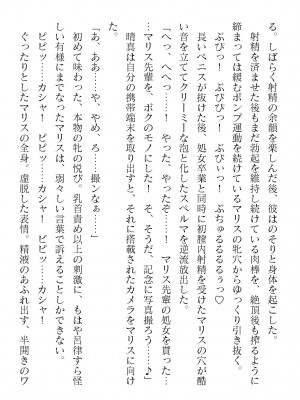 る。しばらく射精の余韻を楽しんだ後、彼はのそりと身体を起こした。
射精を済ませた後もまだ勃起を維持している肉棒を、絶頂後も搾るように
締まっては緩むポンプ運動を続けているマリスの牝穴からゆっくり引き抜く。
ぶぴっ！　ぶぴぃっ！　ぶちゅるるるるぅっ♡
長いペニスが抜けた後、処女卒業と同時に初膣内射精を受けたマリスの穴が酷
い音を立ててクリーミーな泡と化したスペルマを逆流放出した。
「へっ、へへっ……や、やった……！　マリス先輩の処女を貰った…
マリス先輩を、ボクのモノにした！　そ、そうだ、記念に写真撮ろう……♪」
晴真は自分の携帯端末を取り出すと、それに搭載されたカメラをマリスに向け
た。
「あ、ああ……や、やめ、ろ……撮ンなぁ……」
初めて味わった、本物の牝の悦び。乳首責め以上の刺激に、もはや呂律すら怪
しい有様にまでなったマリスは、弱々しい言葉で訴えることしかできない。
ピピッ……カシャー！　ピピッ……カシャー！
ピピッ……カシャー！　ピピッ……カシャー！
ぐったりとしたマリスの全身。虚脱した表情。精液のあふれ出す、半開きのワ